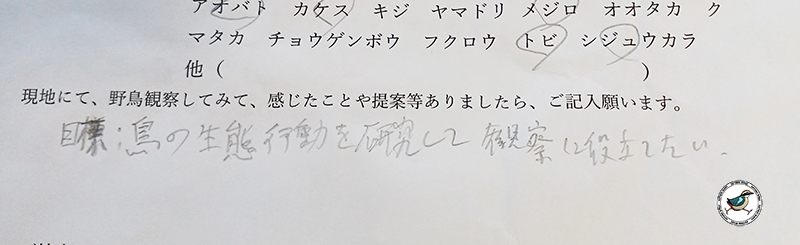 アオバト カケス キジ ヤマドリ メジロ オオタカ ク
マタカ チョウゲンボウ フクロウ トビ シジュウカラ
他（ ）
現地にて、野鳥観察してみて、感じたことや提案等ありましたら、ご記入願います。
目標：鳥の生態行動を研究して観察に役立てたい．